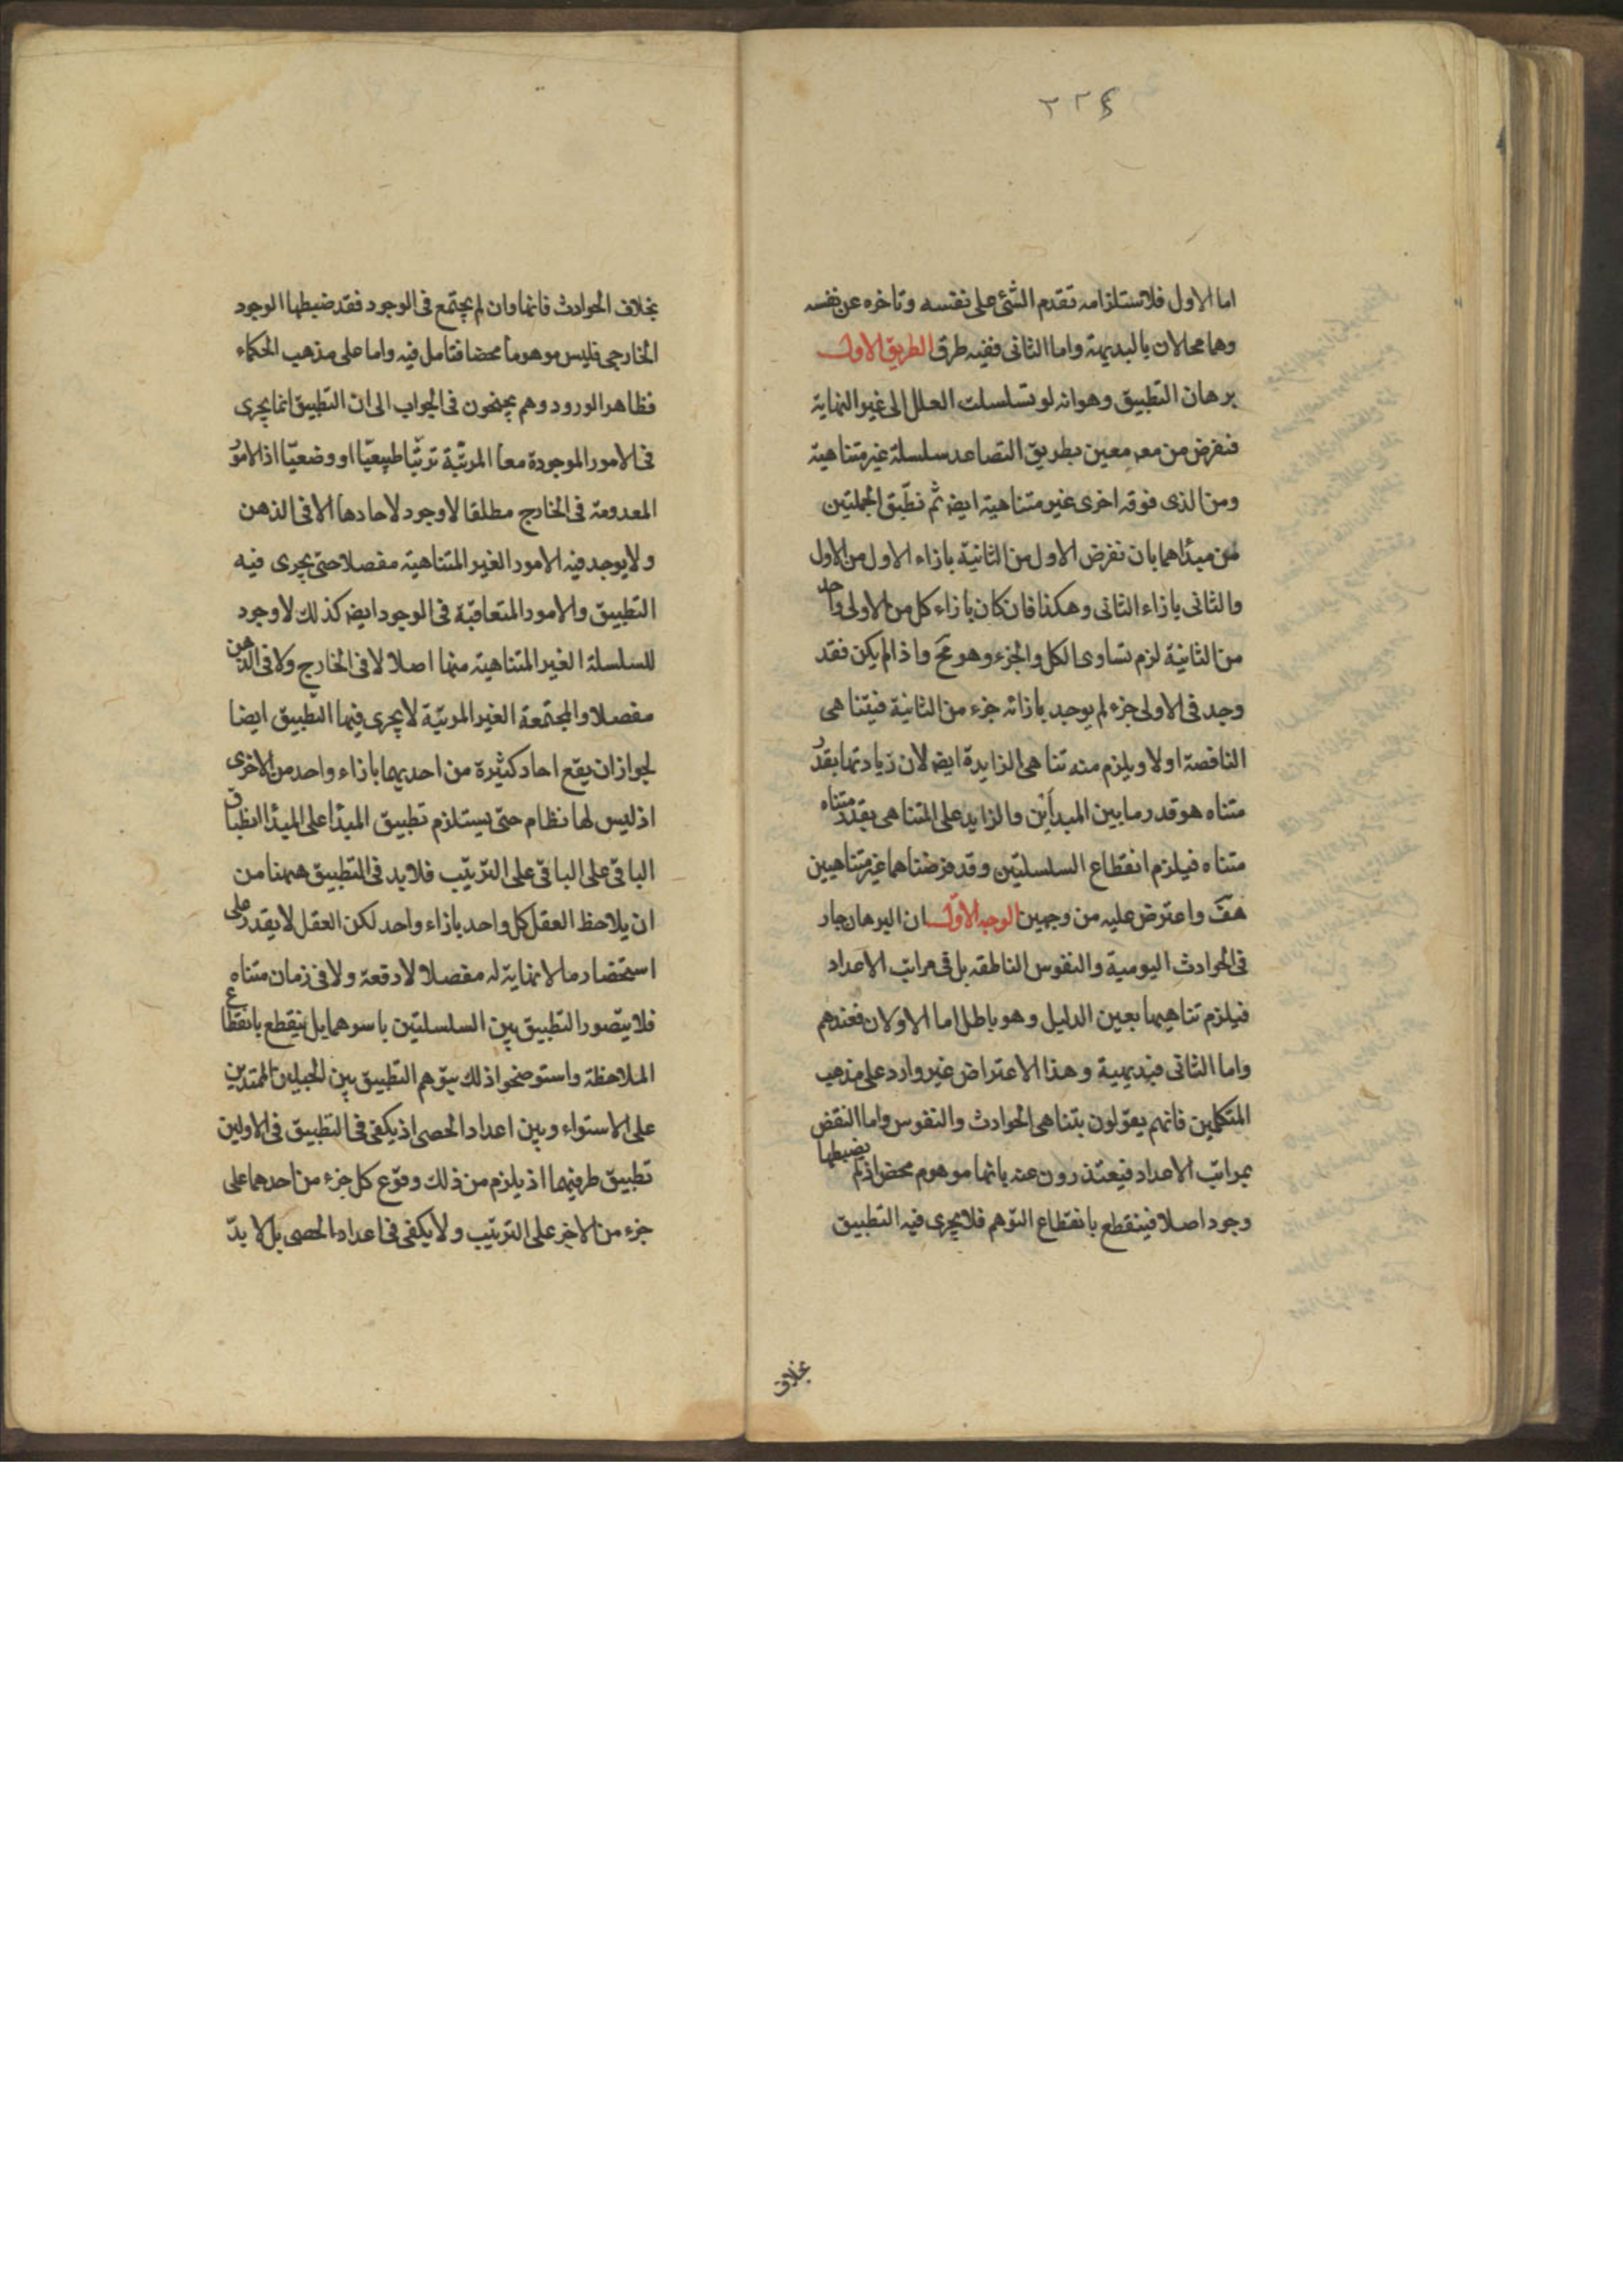 ٢٢٤
اما الاول فلاستلزامه تقدم الشئ على نفسه وتاخره عن نفسه
وهما محالان بالبديهة واما الثانى ففيه طرق الطريق الاول
برهان التطبيق وهو انه لو تسلسلت العلل الى غير النهاية
فنفرض من معه معين بطريق التصاعد سلسلة غير متناهية
ومن الذى فوقه اخرى غير متناهية ايضه ثم نطبّق الجملتين
من مبدٔاهما بان نفرض الاول من الثانية بازاء الاول من الاول
والثانى بازاء الثانى وهكذا فان كان بازاء كل من الاولى واحد
من الثانية لزم تساوى الكل والجزء وهو مح واذا لم يكن فقد
وجد فى الاولى جزء لم يوجد بازائه جزء من الثانية فيتناهى
الناقصة اولا ويلزم منه تناهى الزايدة ايضه لان زيادتها بقدر
متناه هو قدر ما بين المبدأين والزايد على المتناهى بقدر متناه
متناه فيلزم انقطاع السلسلتين وقد فرضناهما غير متناهيين
هف واعترض عليه من وجهين الوجه الاوّل ان البرهان جار
فى الحوادث اليومية والنفوس الناطقه بل فى مراتب الاعداد
فيلزم تناهيها بعين الدليل وهو باطل اما الاولان فعندهم
واما الثانى فبديهية وهذا الاعتراض غير وارد على مذهب
المتكلمين فانهم يقولون بتناهى الحوادث والنفوس واما النقض
بمراتب الاعداد فيعتذرون عنه بانها موهوم محض اذ لم يضبطها
وجود اصلا فينقطع بانقطاع التوهم فلا يجرى فيه التطبيق
بخلاف
بخلاف الحوادث فانها وان لم يجتمع فى الوجود فقد ضبطها الوجود
الخارجى فليس موهوما محضا فتامل فيه واما على مذهب الحكماء
فظاهر الورود وهم يجنحون فى الجواب الى ان التطبيق انما يجرى
فى الامور الموجودة معا المرتّبة ترتّبا طبيعيّا او وضعيّا اذ الامور
المعدومة فى الخارج مطلقا لا وجود لاحادها الا فى الذهن
ولا يوجد فيه الامور الغير المتناهية مفصلا حتى يجرى فيه
التطبيق والامور المتعاقبة فى الوجود ايضه كذلك لا وجود
للسلسلة الغير المتناهية منها اصلا لا فى الخارج ولا فى الذهن
مفصلا والمجتمعة الغير المرتبّة لا يجرى فيها التطبيق ايضا
لجواز ان يقع احاد كثيرة من احديهما بازاء واحد من الاخرى
اذ ليس لها نظام حتى يستلزم تطبيق المبدٔا على المبدٔا انطباق
الباقى على الباقى على الترتيب فلا بد فى التطبيق ههنا من
ان يلاحظ العقل كل واحد بازاء واحد لكن العقل لا يقدر على
استحضار ما لا نهاية له مفصلا لا دفعة ولا فى زمان متناه
فلا يتصور التطبيق بين السلسلتين باسرهما بل ينقطع بانقطاع
الملاحظة واستوضحوا ذلك بتوهم التطبيق بين الحبلين الممتدين
على الاستواء وبين اعداد الحصى اذ يكفى فى التطبيق فى الاولين
تطبيق طرفيهما اذ يلزم من ذلك وقوع كل جزء من احدهما على
جزء من الاخر على الترتيب ولا يكفى فى اعداد الحصى بل لا بدّ